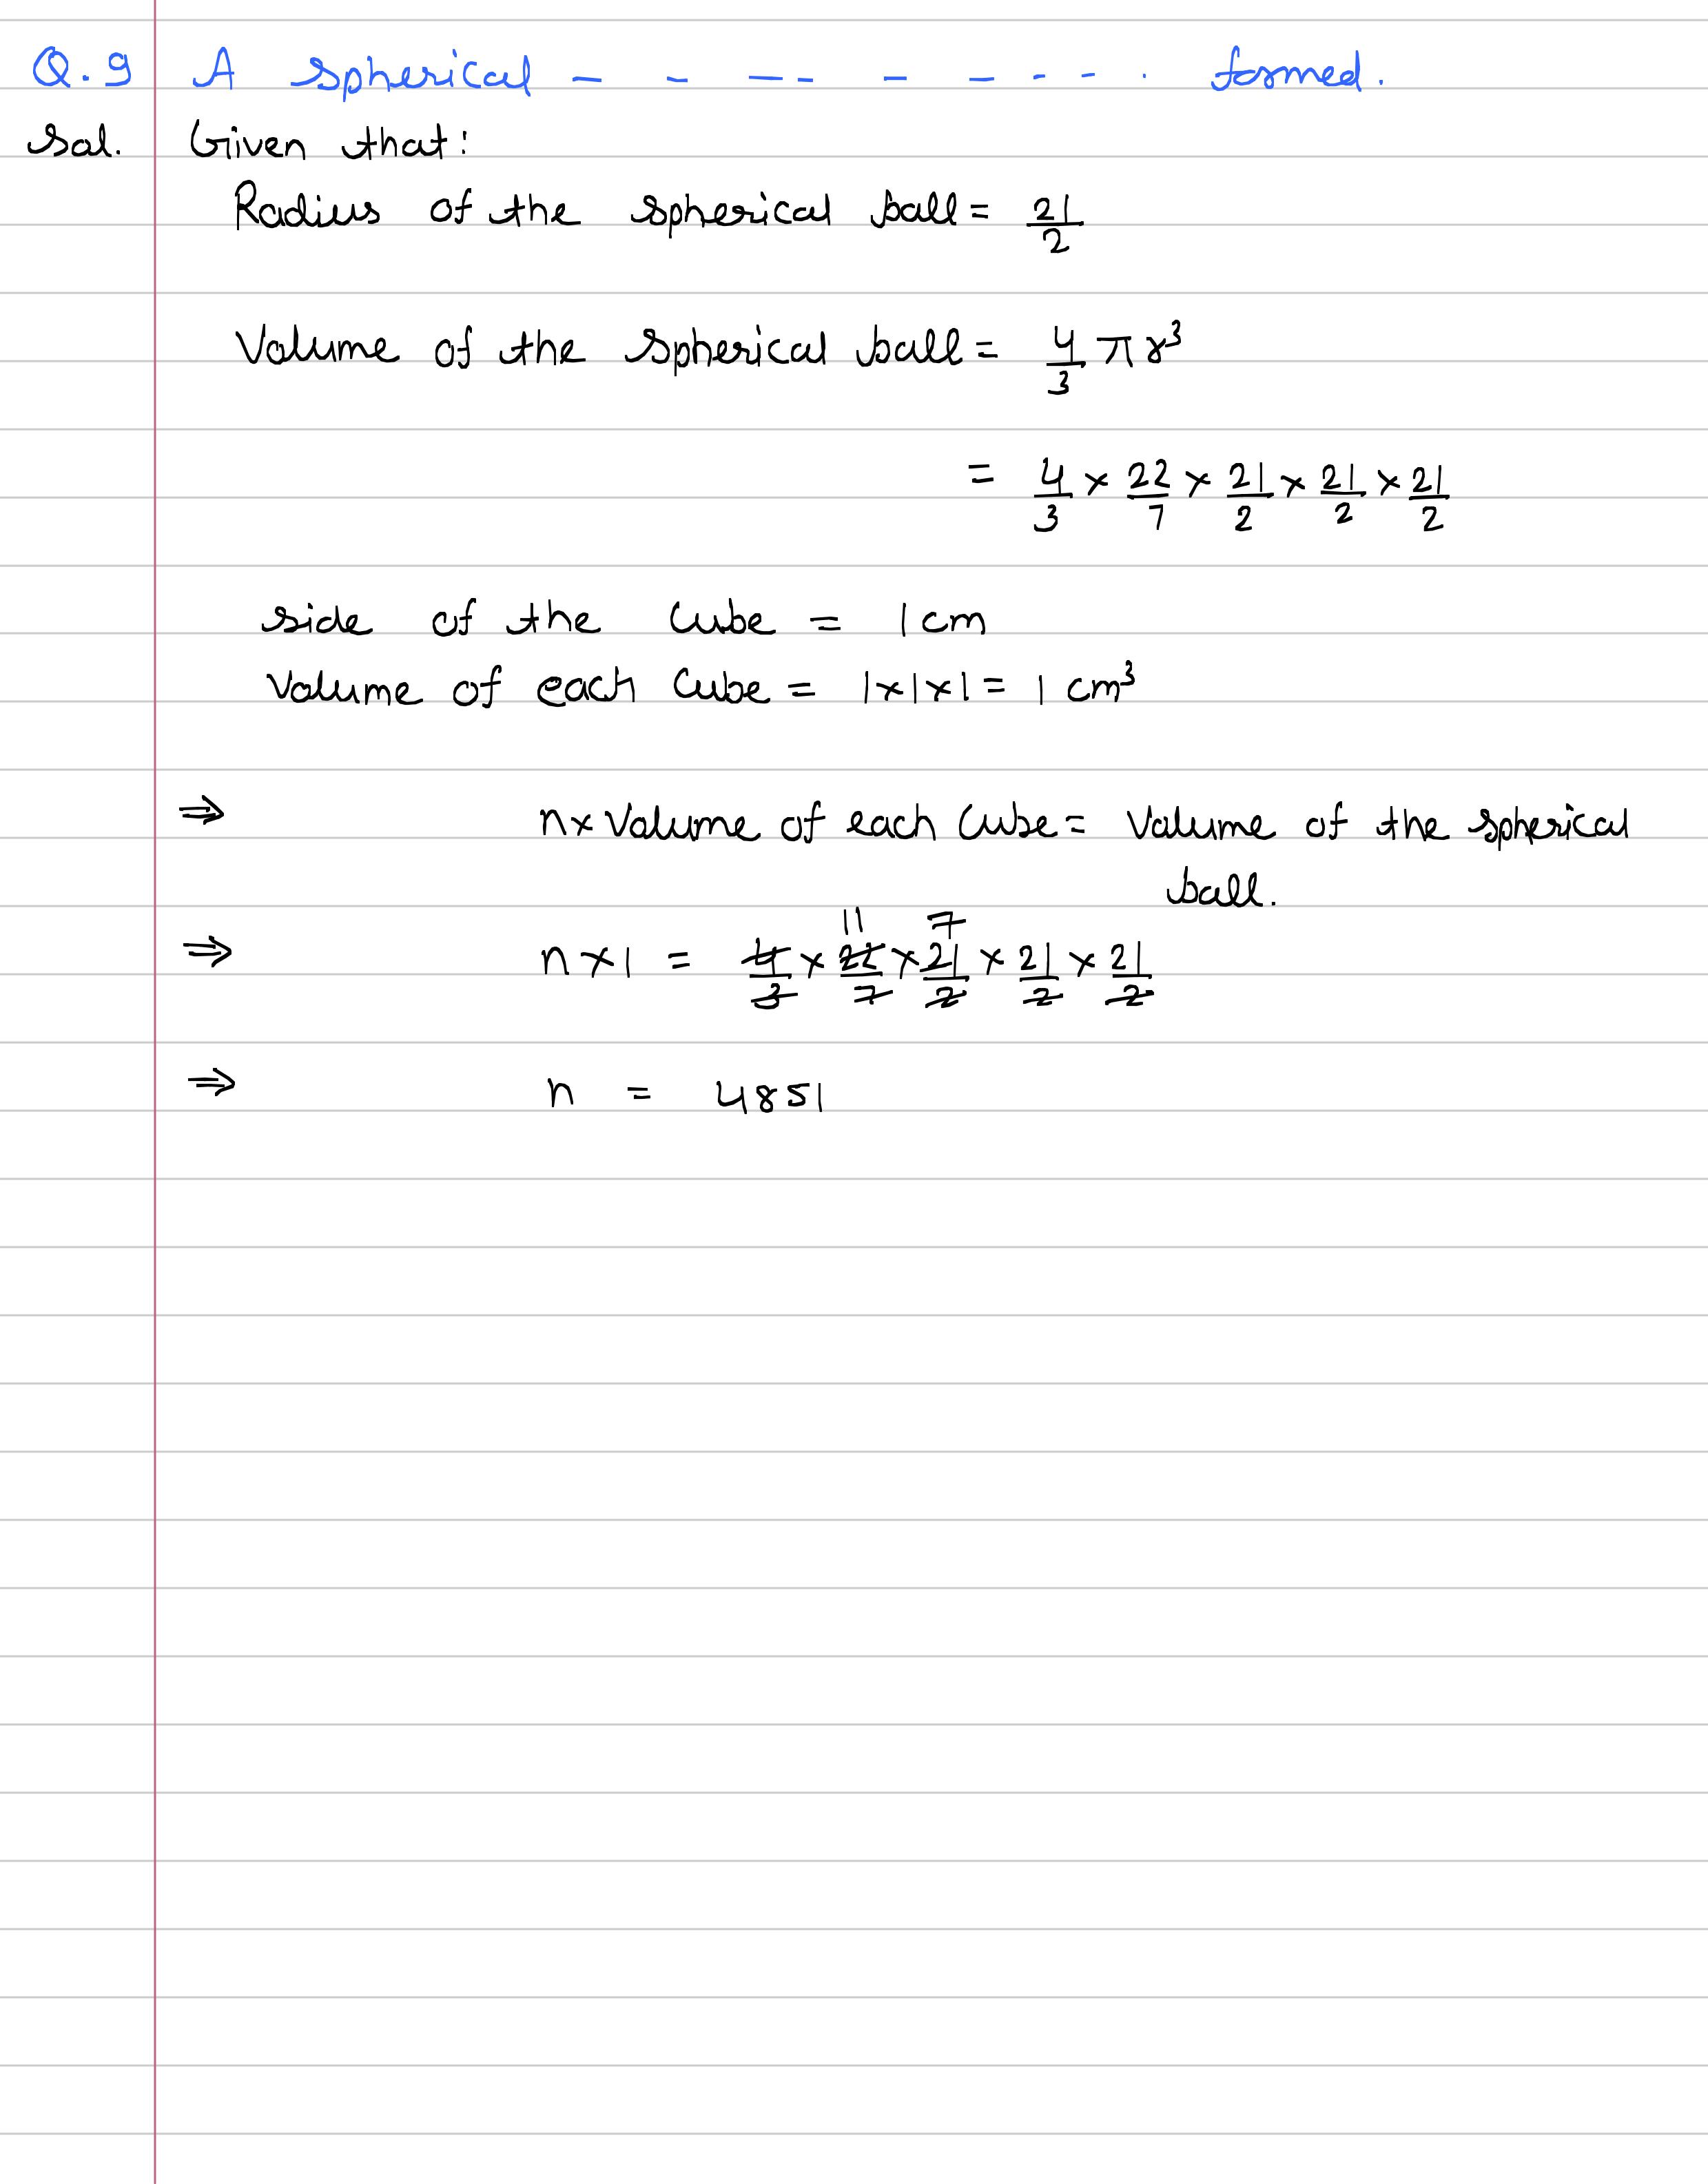 Q.9 A spherical - - - - - - - - - . formed.
Sol. Given that:
Radius of the spherical ball = 21/2
Volume of the spherical ball = 4/3 πr³
= 4/3 × 22/7 × 21/2 × 21/2 × 21/2
side of the cube = 1 cm
Volume of each cube = 1×1×1 = 1 cm³
⇒ n× Volume of each cube = Volume of the spherical
ball.
11 7
⇒ n×1 = 4/3 × 22/7 × 21/2 × 21/2 × 21/2
⇒ n = 4851